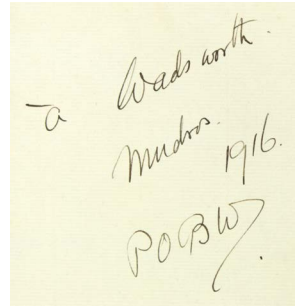 à Wadsworth.
Mudros. 1916.
POBW.